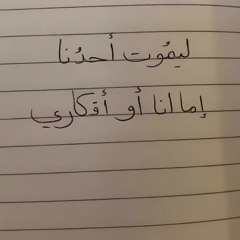 ليمُوت أحدُنا
إما انا أو أفكاري